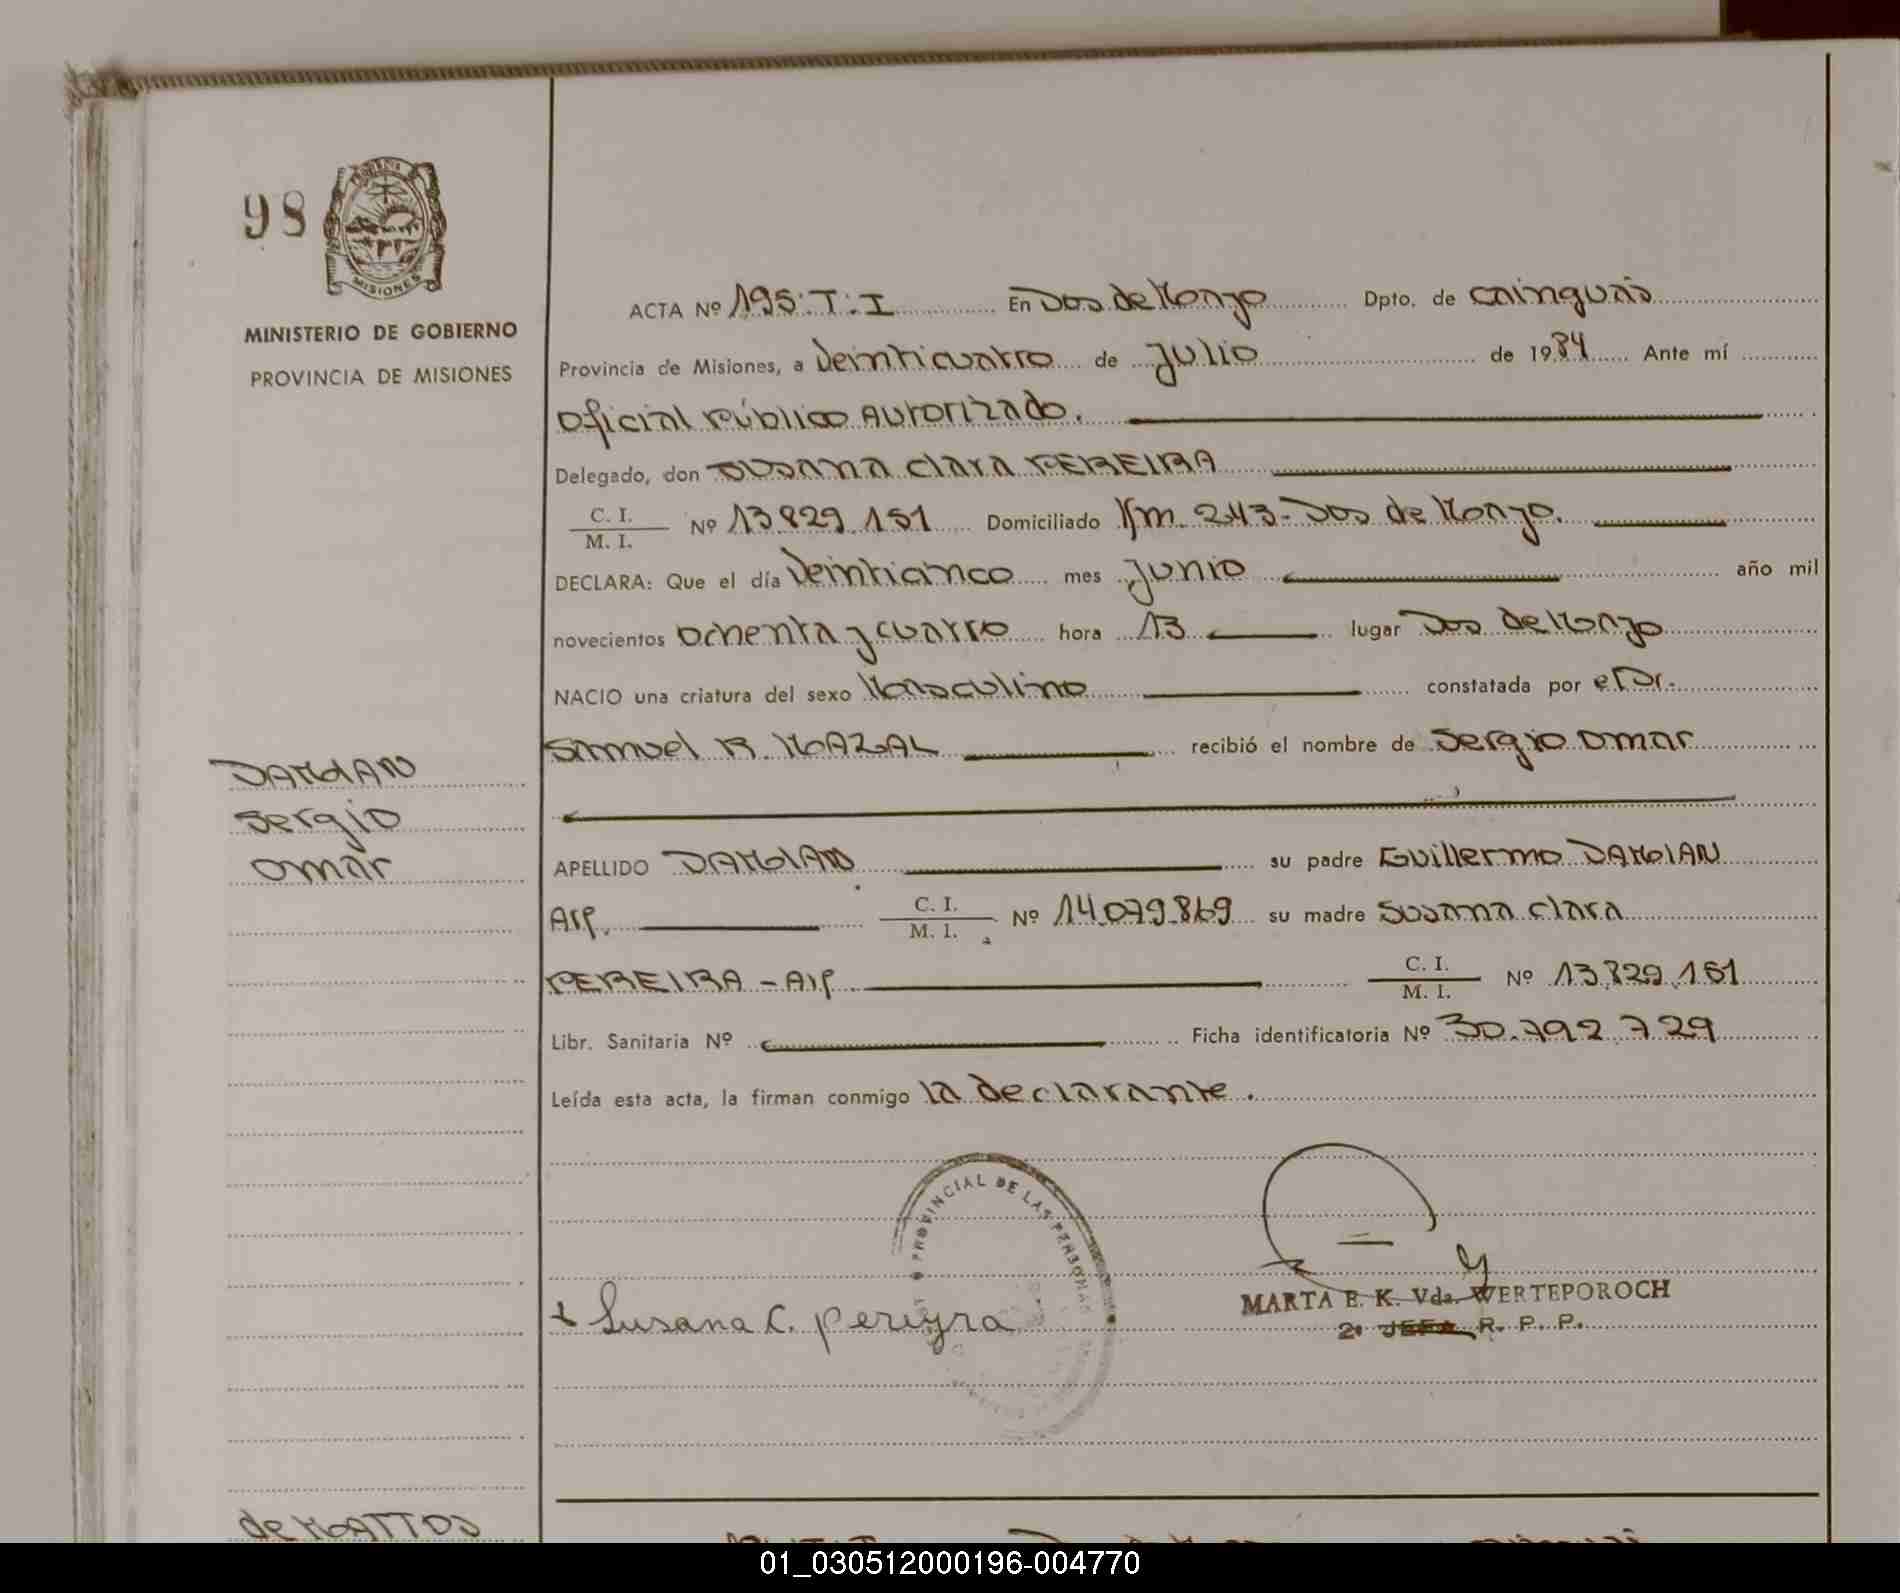 98
MISIONES
MINISTERIO DE GOBIERNO
PROVINCIA DE MISIONES
ACTA Nº 195:T:I En Dos de Mayo Dpto. de Cainguás
Provincia de Misiones, a Veinticuatro de Julio de 1984 Ante mí
Oficial Público Autorizado.
Delegado, don Susana Clara PEREIRA
C. I.
M. I. Nº 13.829.151 Domiciliado Km. 243-Dos de Mayo.
DECLARA: Que el día Veinticinco mes Junio año mil
novecientos Ochenta y cuatro hora 13 lugar Dos de Mayo
NACIO una criatura del sexo Masculino constatada por el Dr.
Samuel R. MAZAL recibió el nombre de Sergio Omar
DAMIAN
Sergio
Omar
APELLIDO DAMIAN su padre Guillermo DAMIAN
Arg. C. I.
M. I. Nº 14.079.869 su madre Susana Clara
PEREIRA - Arg. C. I.
M. I. Nº 13.829.151
Libr. Sanitaria Nº Ficha identificatoria Nº 30.792.729
Leída esta acta, la firman conmigo la declarante.
PROVINCIAL DE LAS PERSONAS
Susana C. Pereyra
MARTA E. K. Vda. WERTEPOROCH
2º JEFA R. P. P.
de MATTOS
01_030512000196-004770